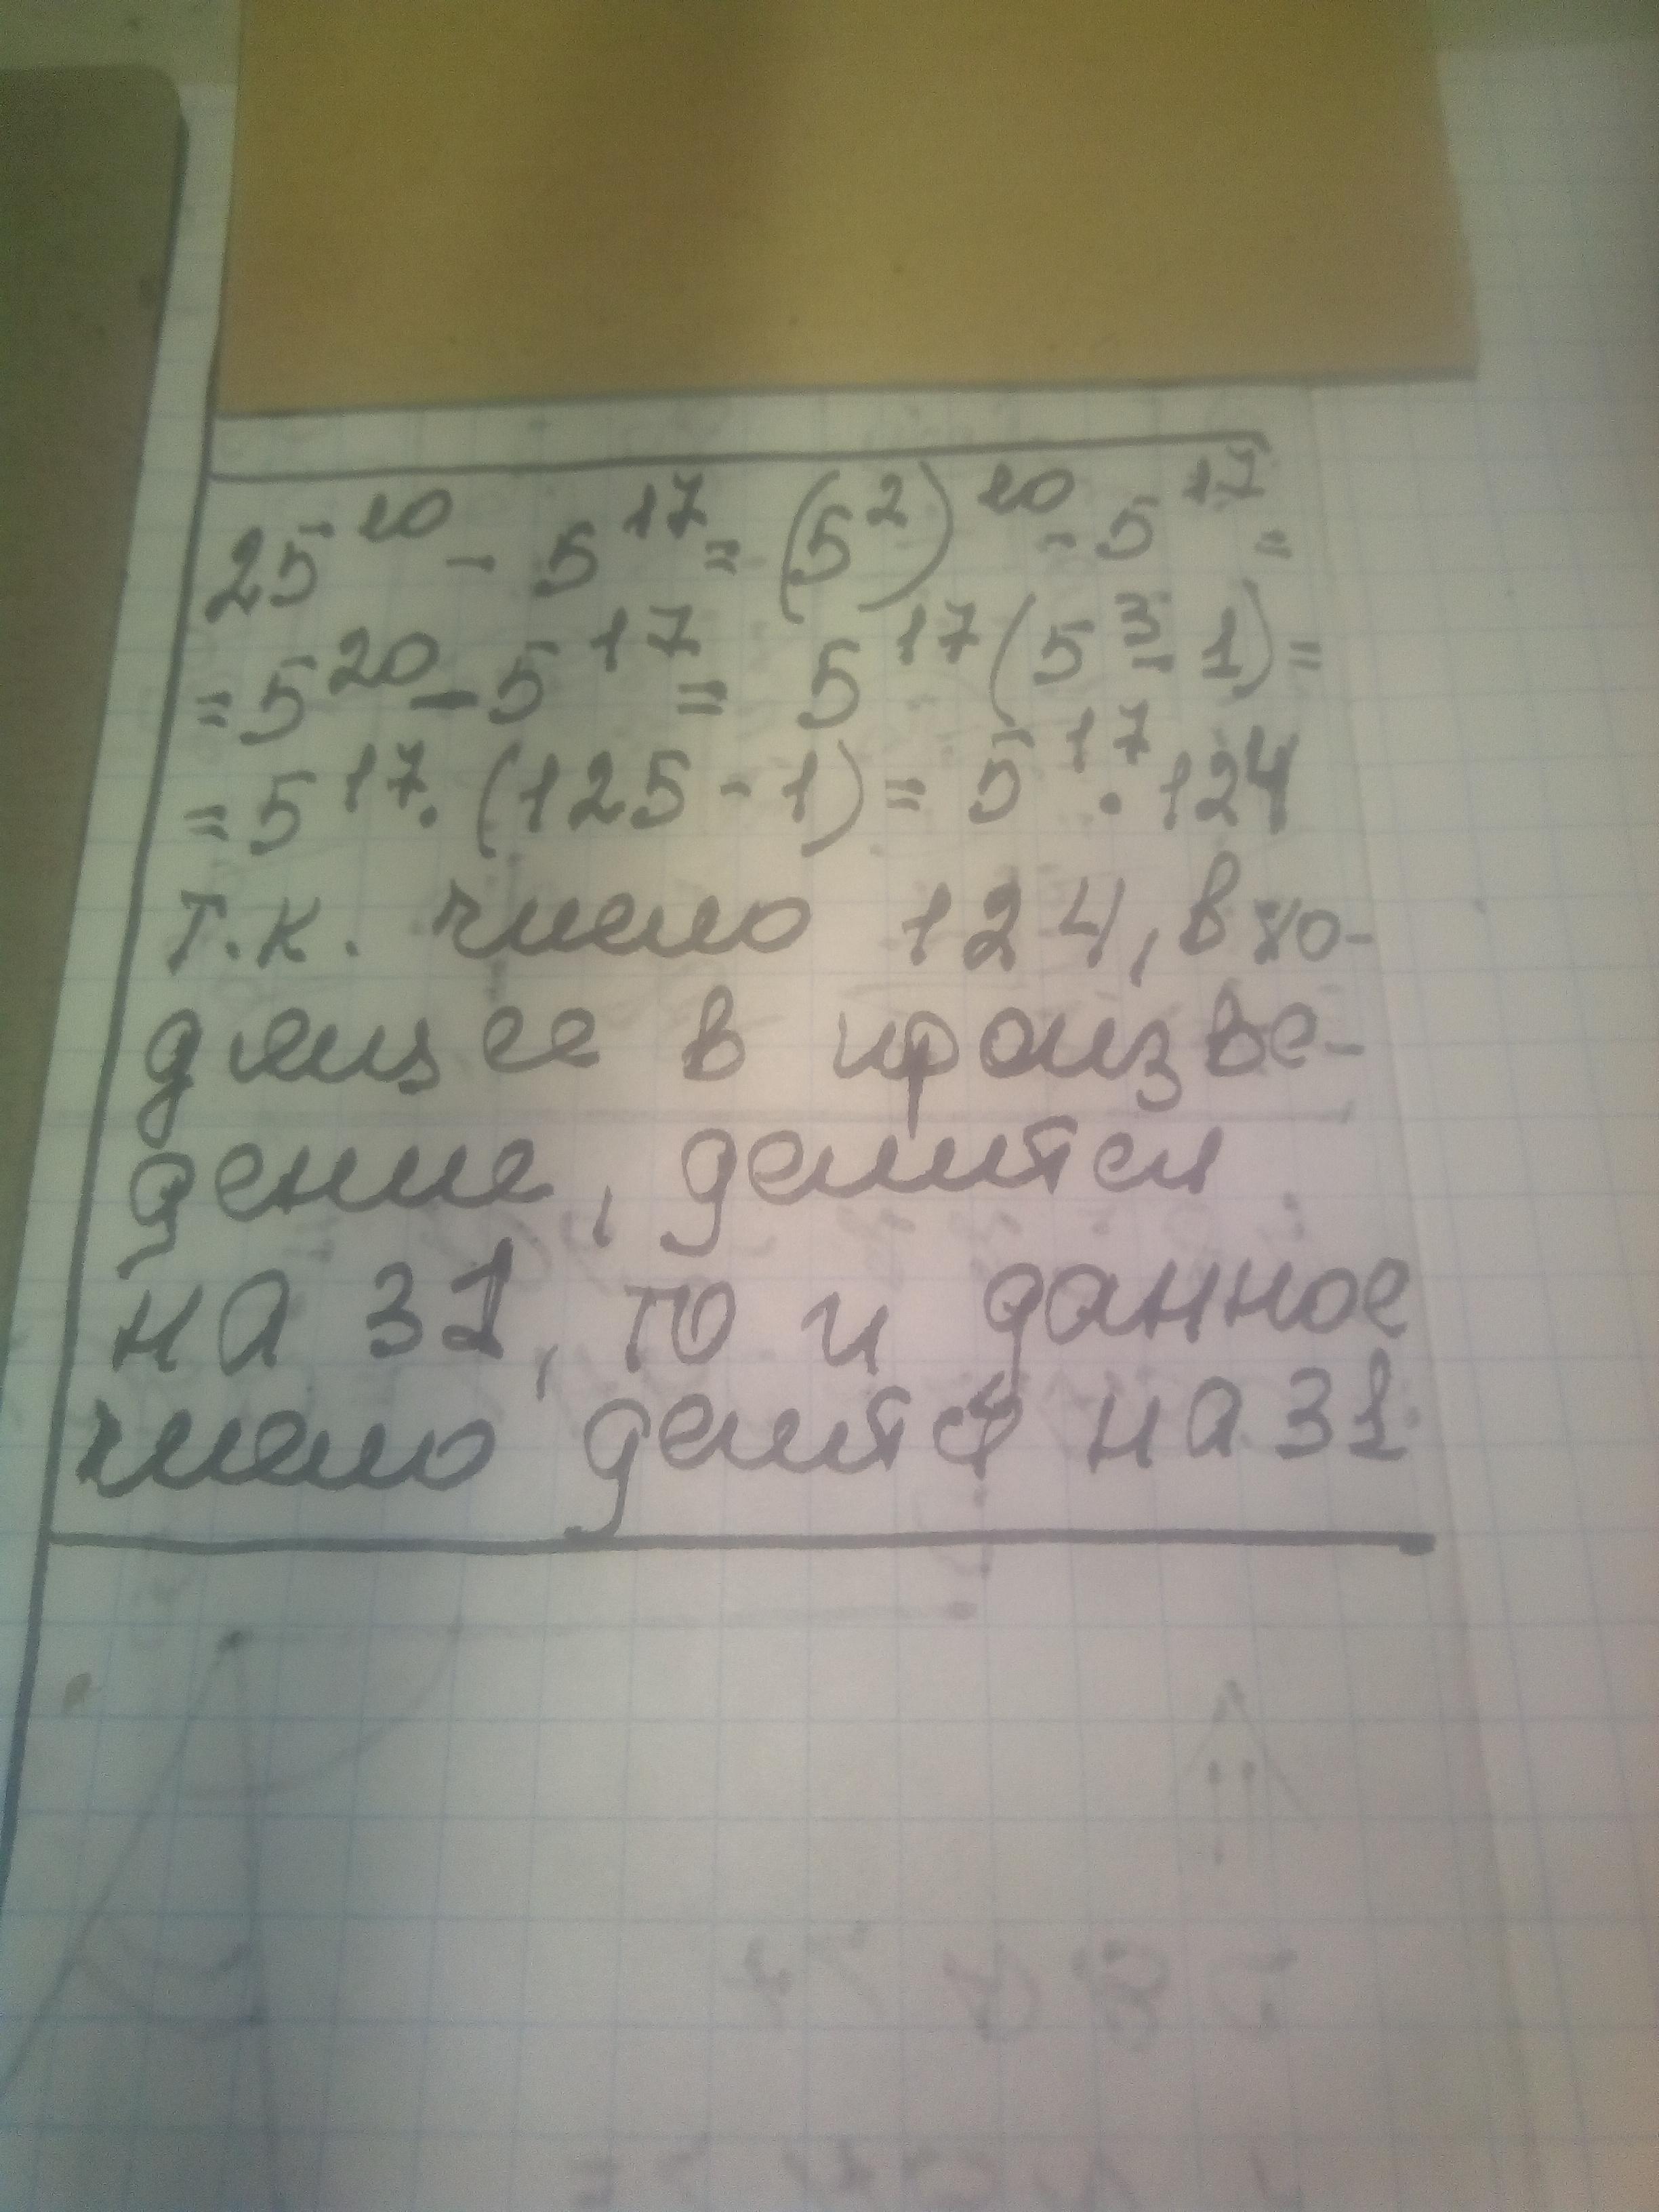 25²⁰ - 5¹⁷ = (5²)²⁰ - 5¹⁷ =
= 5²⁰ - 5¹⁷ = 5¹⁷(5³ - 1) =
= 5¹⁷·(125 - 1) = 5¹⁷·124
т.к. число 124, вхо-
дящее в произве-
дение, делится
на 31, то и данное
число делится на 31